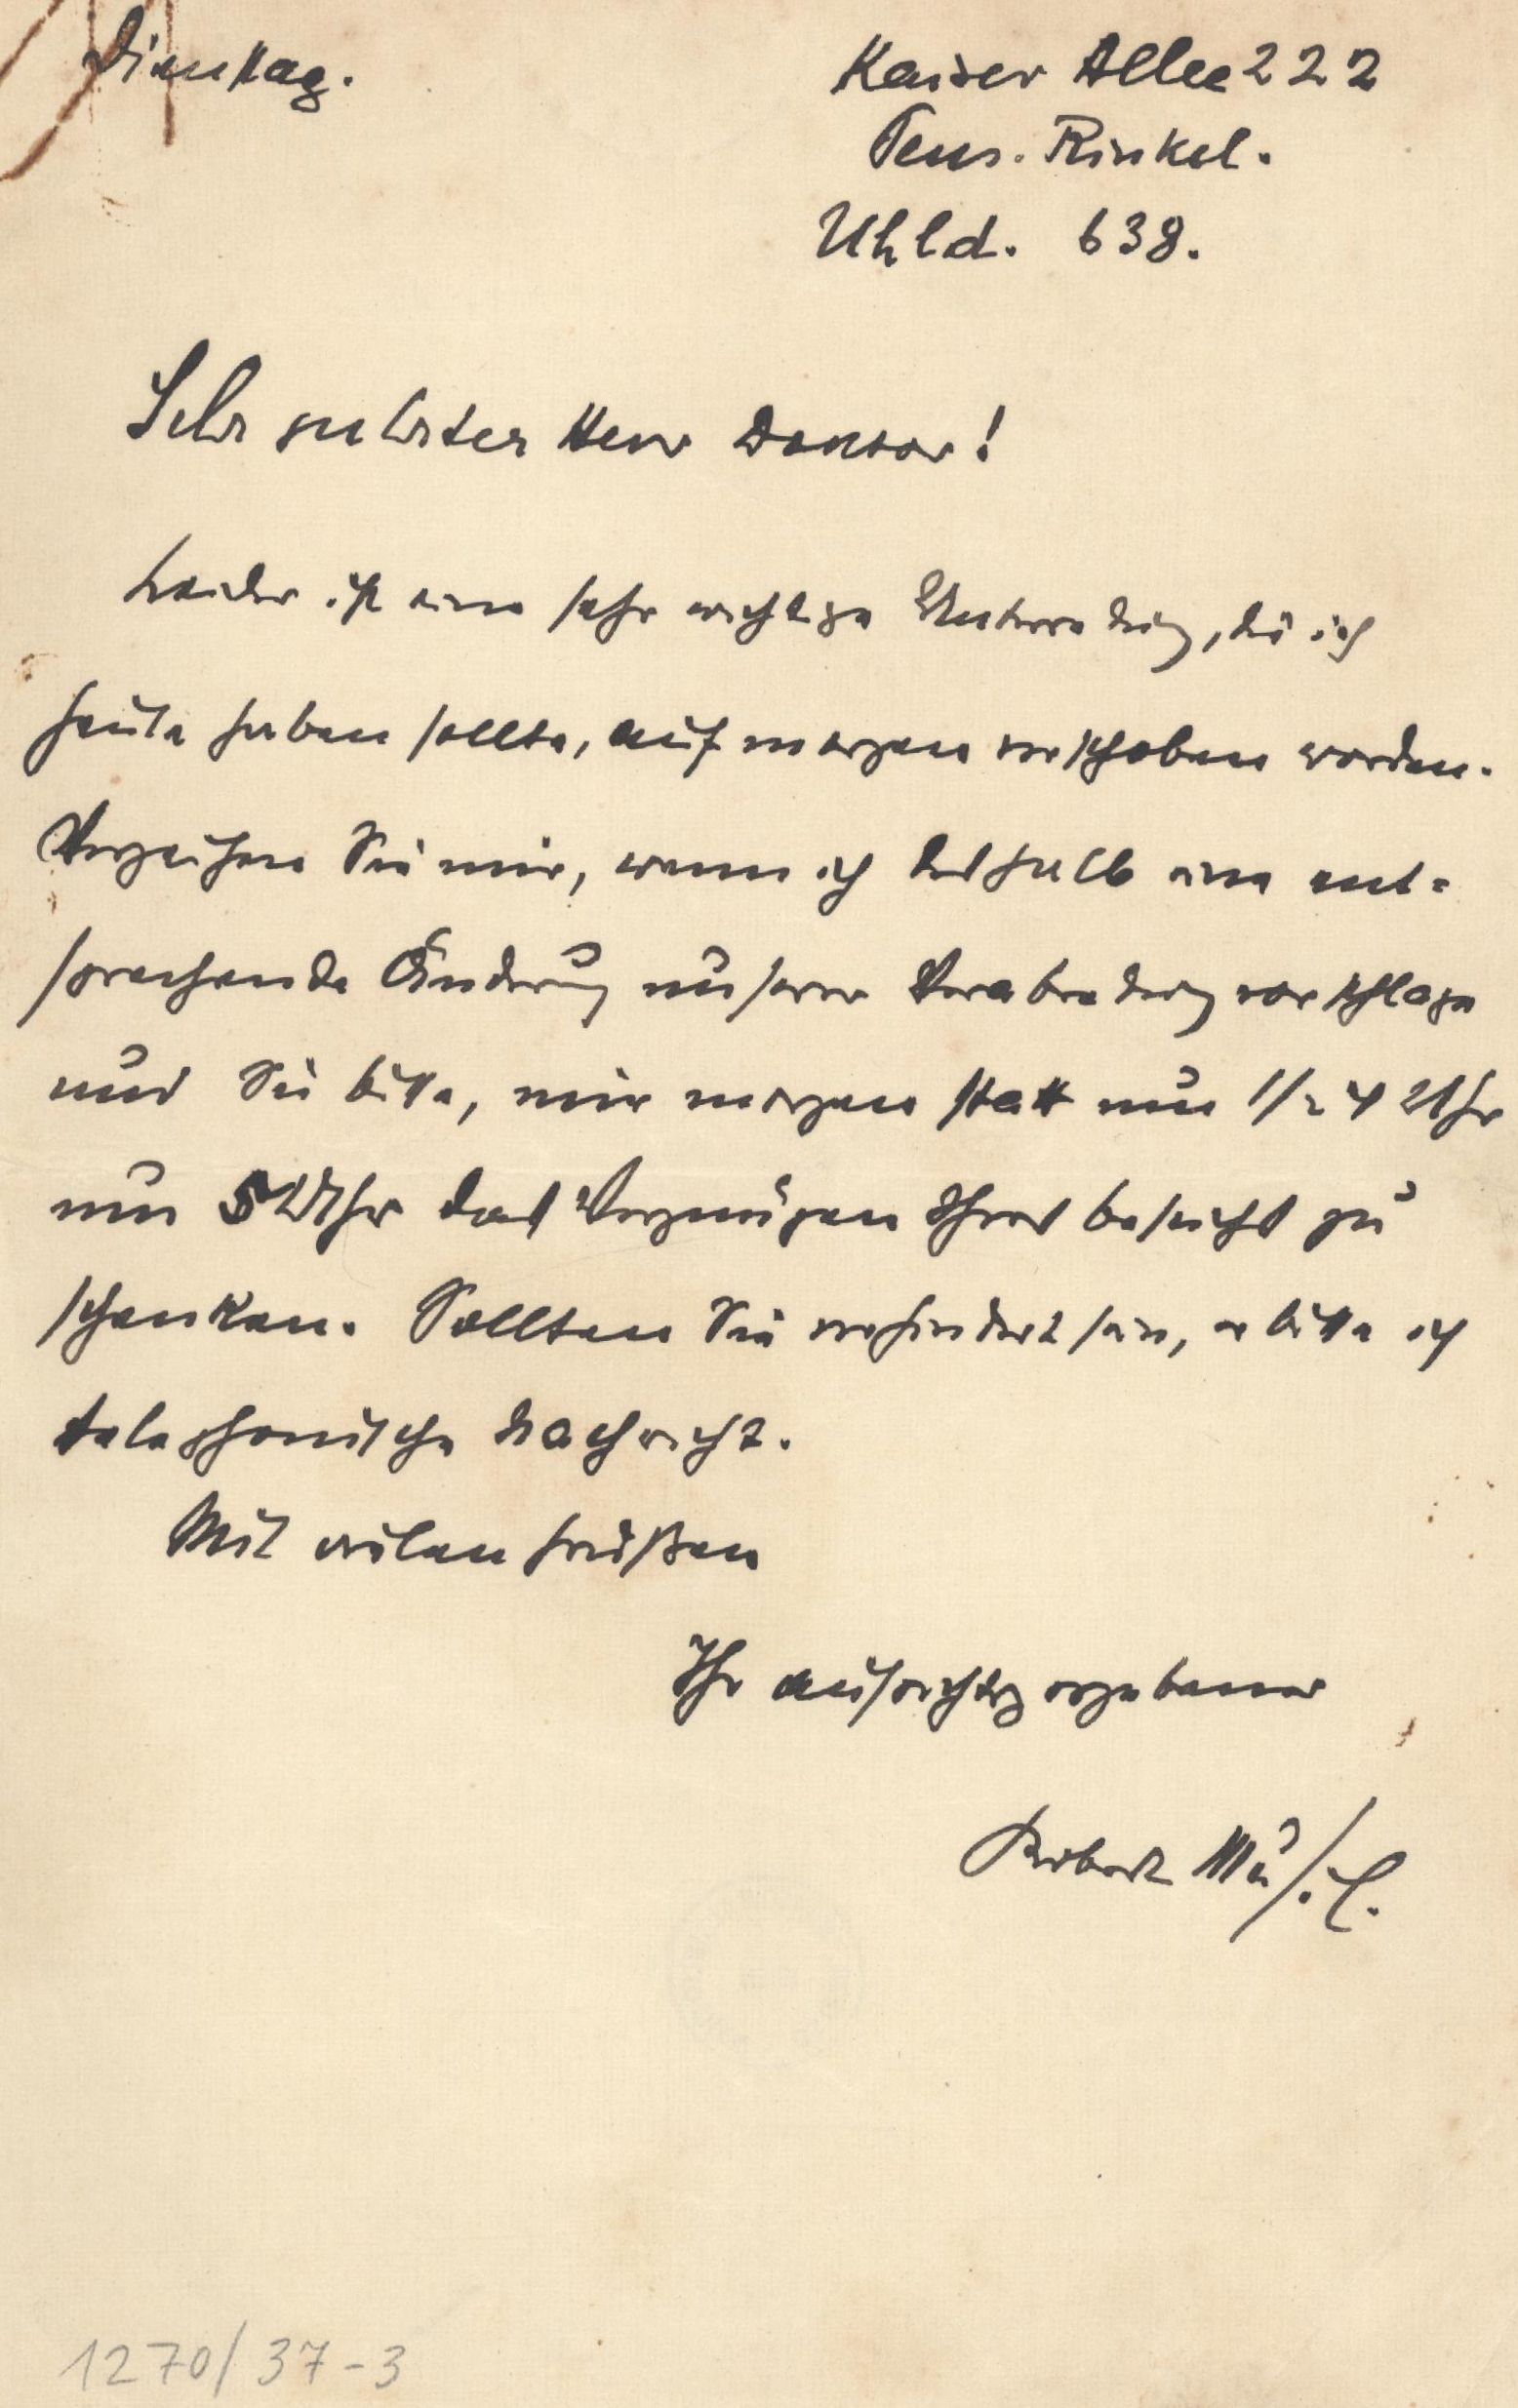 Dienstag.
Kaiser Allee 222
Pens. Rinkel.
Uhld. 638.
Sehr geehrter Herr Doktor!
Leider ist eine sehr wichtige Unterredung, die ich
heute haben sollte, auf morgen verschoben worden.
Verzeihen Sie mir, wenn ich deshalb eine ent-
sprechende Änderung unserer Verabredung vorschlage
und Sie bitte, mir morgen statt um 1/2 4 Uhr
um 5 Uhr das Vergnügen Ihres Besuchs zu
schenken. Sollten Sie verhindert sein, erbitte ich
telephonische Nachricht.
Mit vielen Grüßen
Ihr aufrichtig ergebener
Robert Musil.
1270/37-3